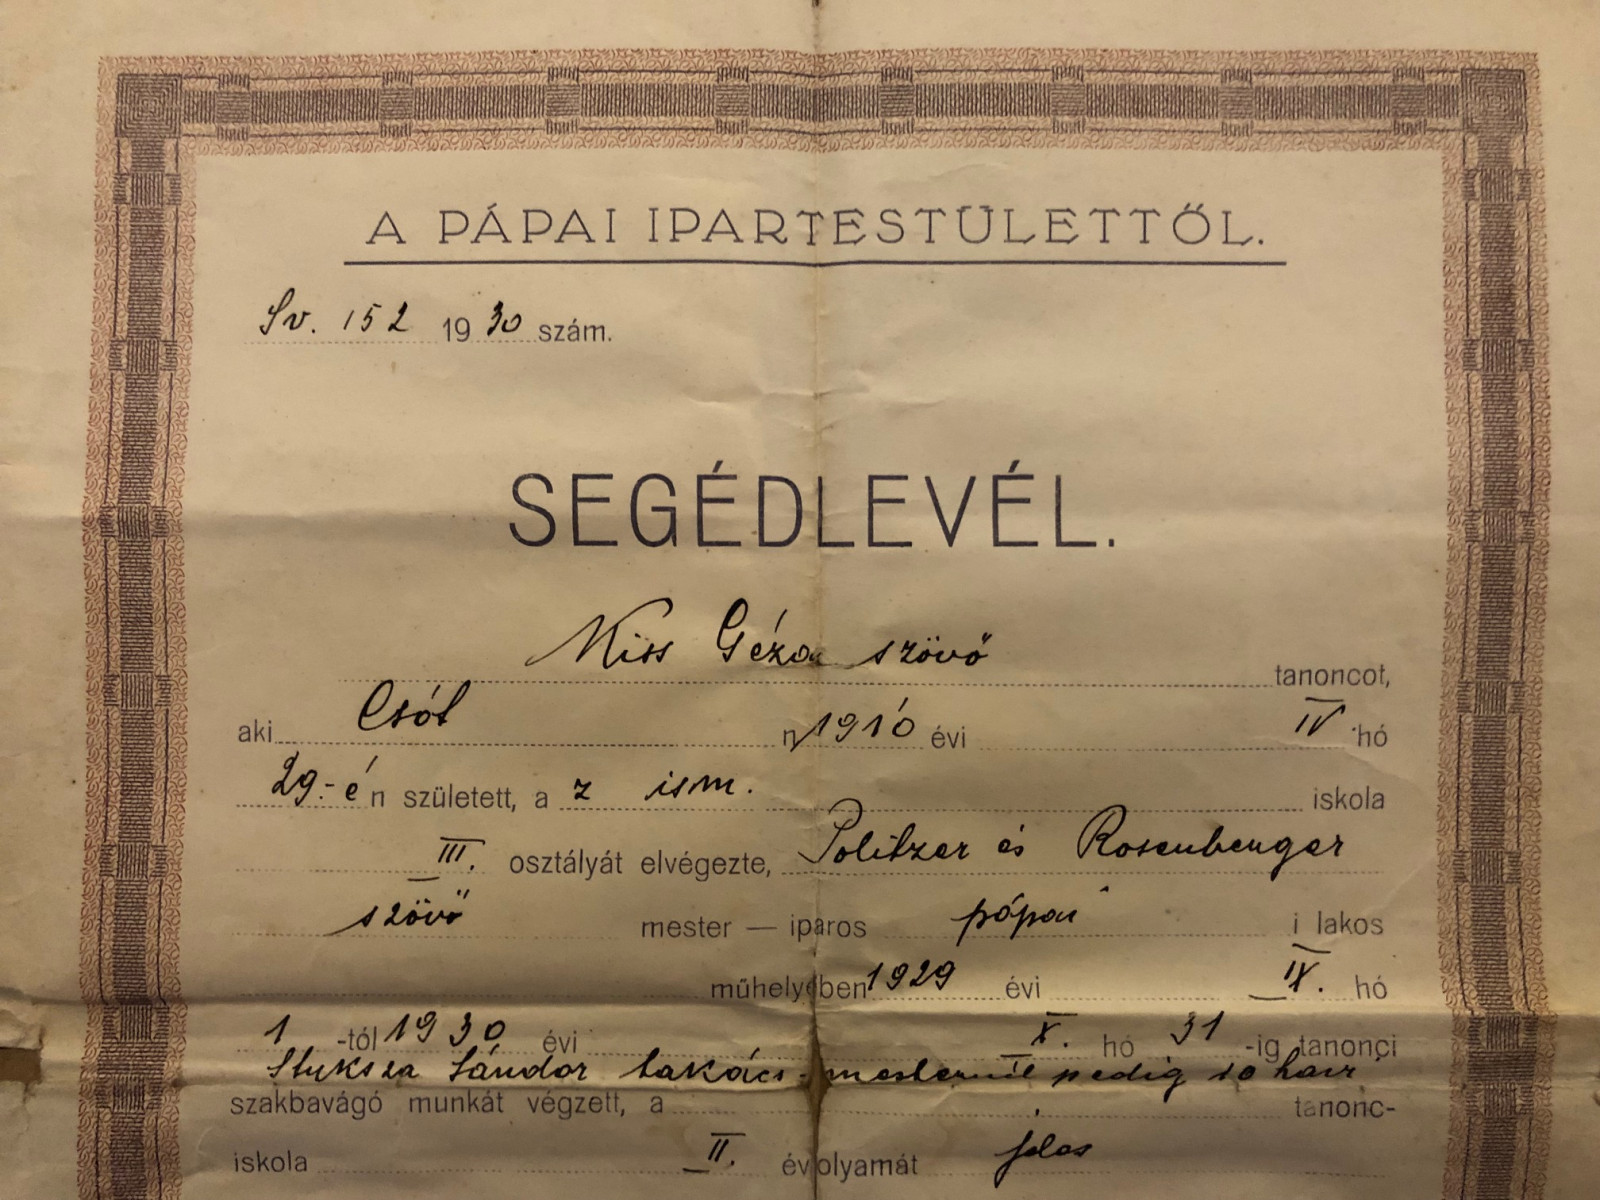 A PÁPAI IPARTESTÜLETTŐL.
Sv. 152 1930 szám.
SEGÉDLEVÉL.
Kiss Géza szövő tanoncot,
aki Csót n 1910 évi IV hó
29.-én született, a z ism. iskola
III. osztályát elvégezte, Politzer és Rosenberger
szövő mester — iparos pápai i lakos
műhelyében 1929 évi IX. hó
1 -tól 1930 évi X. hó 31 -ig tanonci
Sándor takács-mesternél pedig 10 havi
szakbavágó munkát végzett, a tanonc-
iskola II. évfolyamát jeles